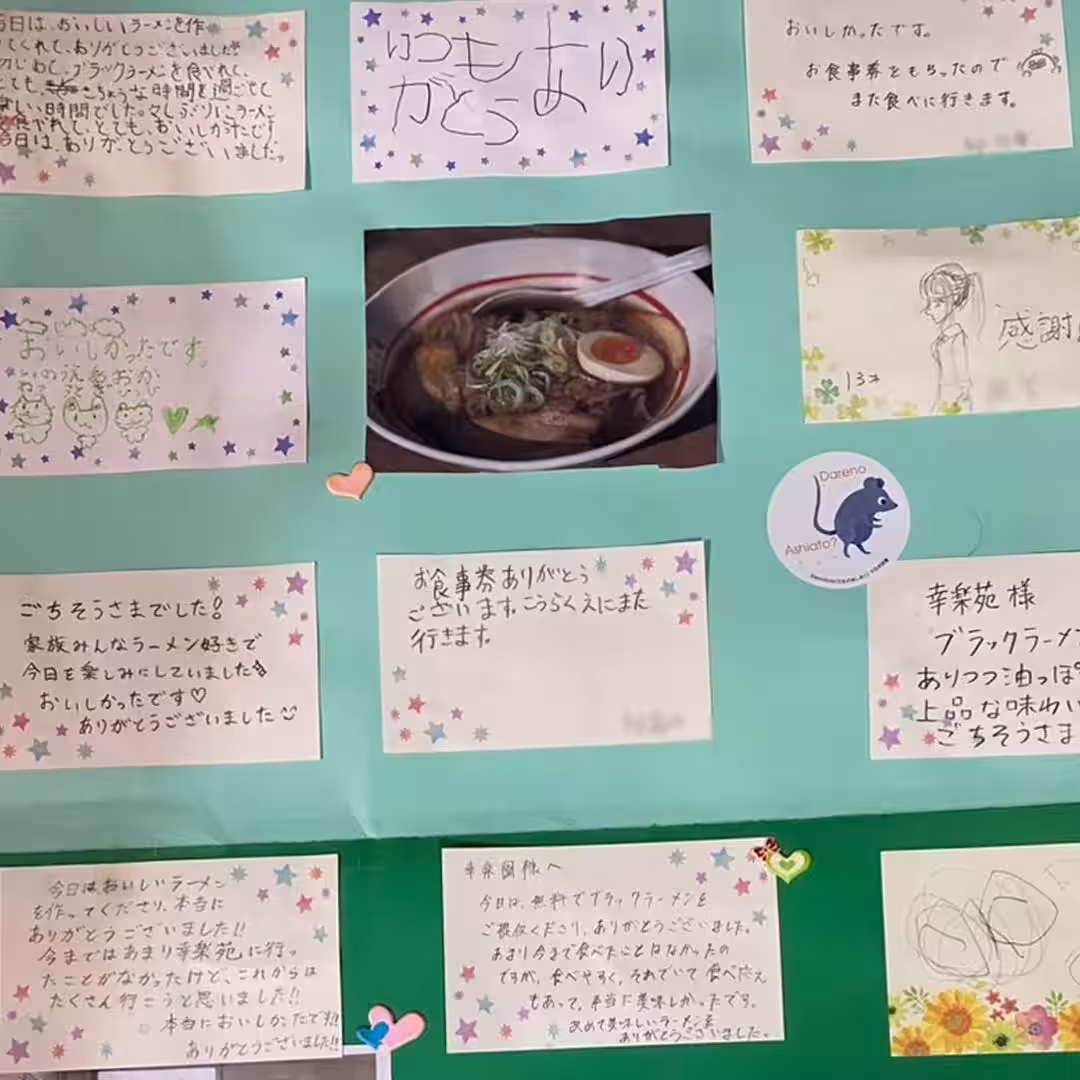 今日は、おいしいラーメンを作っ
てくれて、ありがとうございました!!
初じめて、ブラックラーメンを食べれて、
とても、きちょうな時間を過ごせて
い時間でした。くしぶりにラーメン
食べれて、とても、おいしかたです
今日は、ありがとうございました。
いつもあり
がとう
おいしかったです。
お食事券をもらったので
また食べに行きます。
おいしかったです。
感謝
13才
Dareno
Ashiato?
ごちそうさまでした!
家族みんなラーメン好きで
今日を楽しみにしていました
おいしかったです♡
ありがとうございました
お食事券ありがとう
ございます。こうらくえにまた
行きます。
幸楽苑様
ブラックラーメン
ありつつ油っぽ
上品な味わい
ごちそうさま
今日はおいしいラーメン
を作ってくださり、本当に
ありがとうございました!!
今まではあまり幸楽苑に行っ
たことがなかったけど、これからは
たくさん行こうと思いました!!
本当においしかったです!!
ありがとうございました!!
様へ
今日は、無料でブラックラーメンを
ご提供くださり、ありがとうございました。
あまり今まで食べたことはなかったの
ですが、食べやすく、それでいて食べ応え
もあって、本当に美味しかったです。
改めて美味しいラーメンを
ありがとうございました。